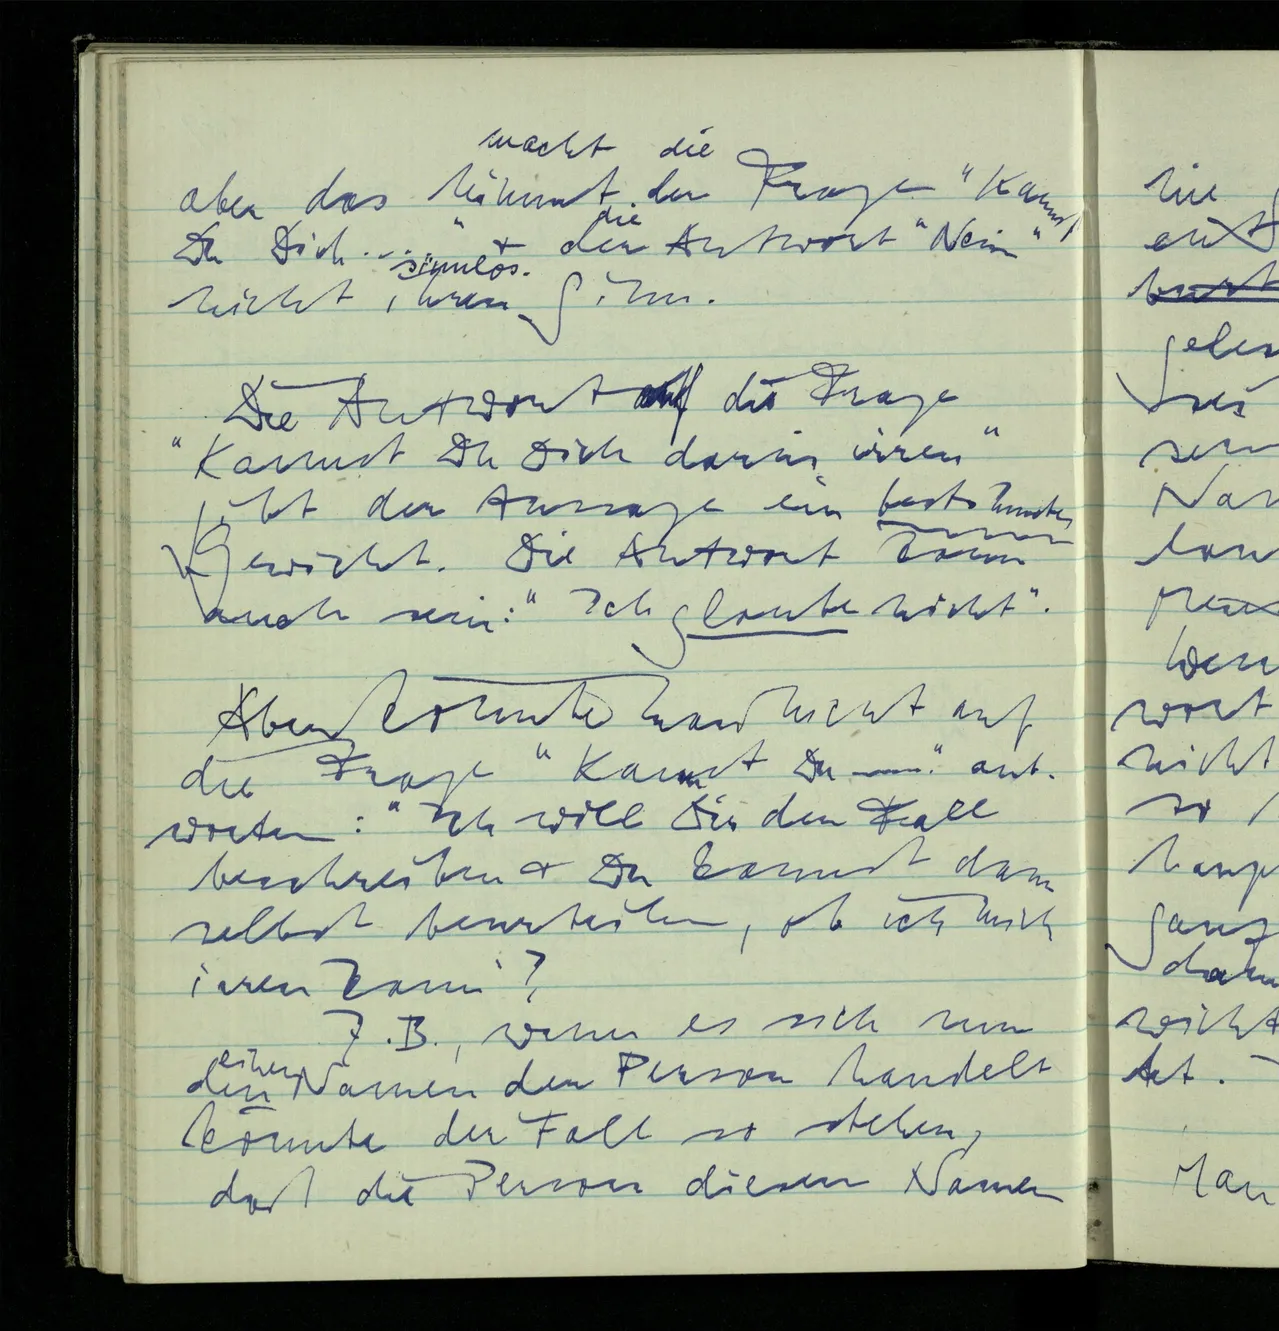 macht die
aber das nimmt der Frage "Kannst
die
Du Dich ..." + der Antwort "Nein"
sinnlos.
nicht ihren Sinn.
Die Antwort auf die Frage
"Kannst Du Dich darin irren"
gibt der Aussage ein bestimmtes
Gewicht. Die Antwort kann
auch sein: "Ich glaube nicht".
Aber könnte man nicht auf
die Frage "Kannst Du —." ant-
worten: "Ich will Dir den Fall
beschreiben & Du kannst dann
selbst beurteilen, ob ich mich
irren kann"?
Z.B., wenn es sich um
einen
den Namen der Person handelt
könnte der Fall so stehen,
daß die Person diesen Namen
nie
geles
sein
Nam
wort
nicht
so
haup
ganz
Man